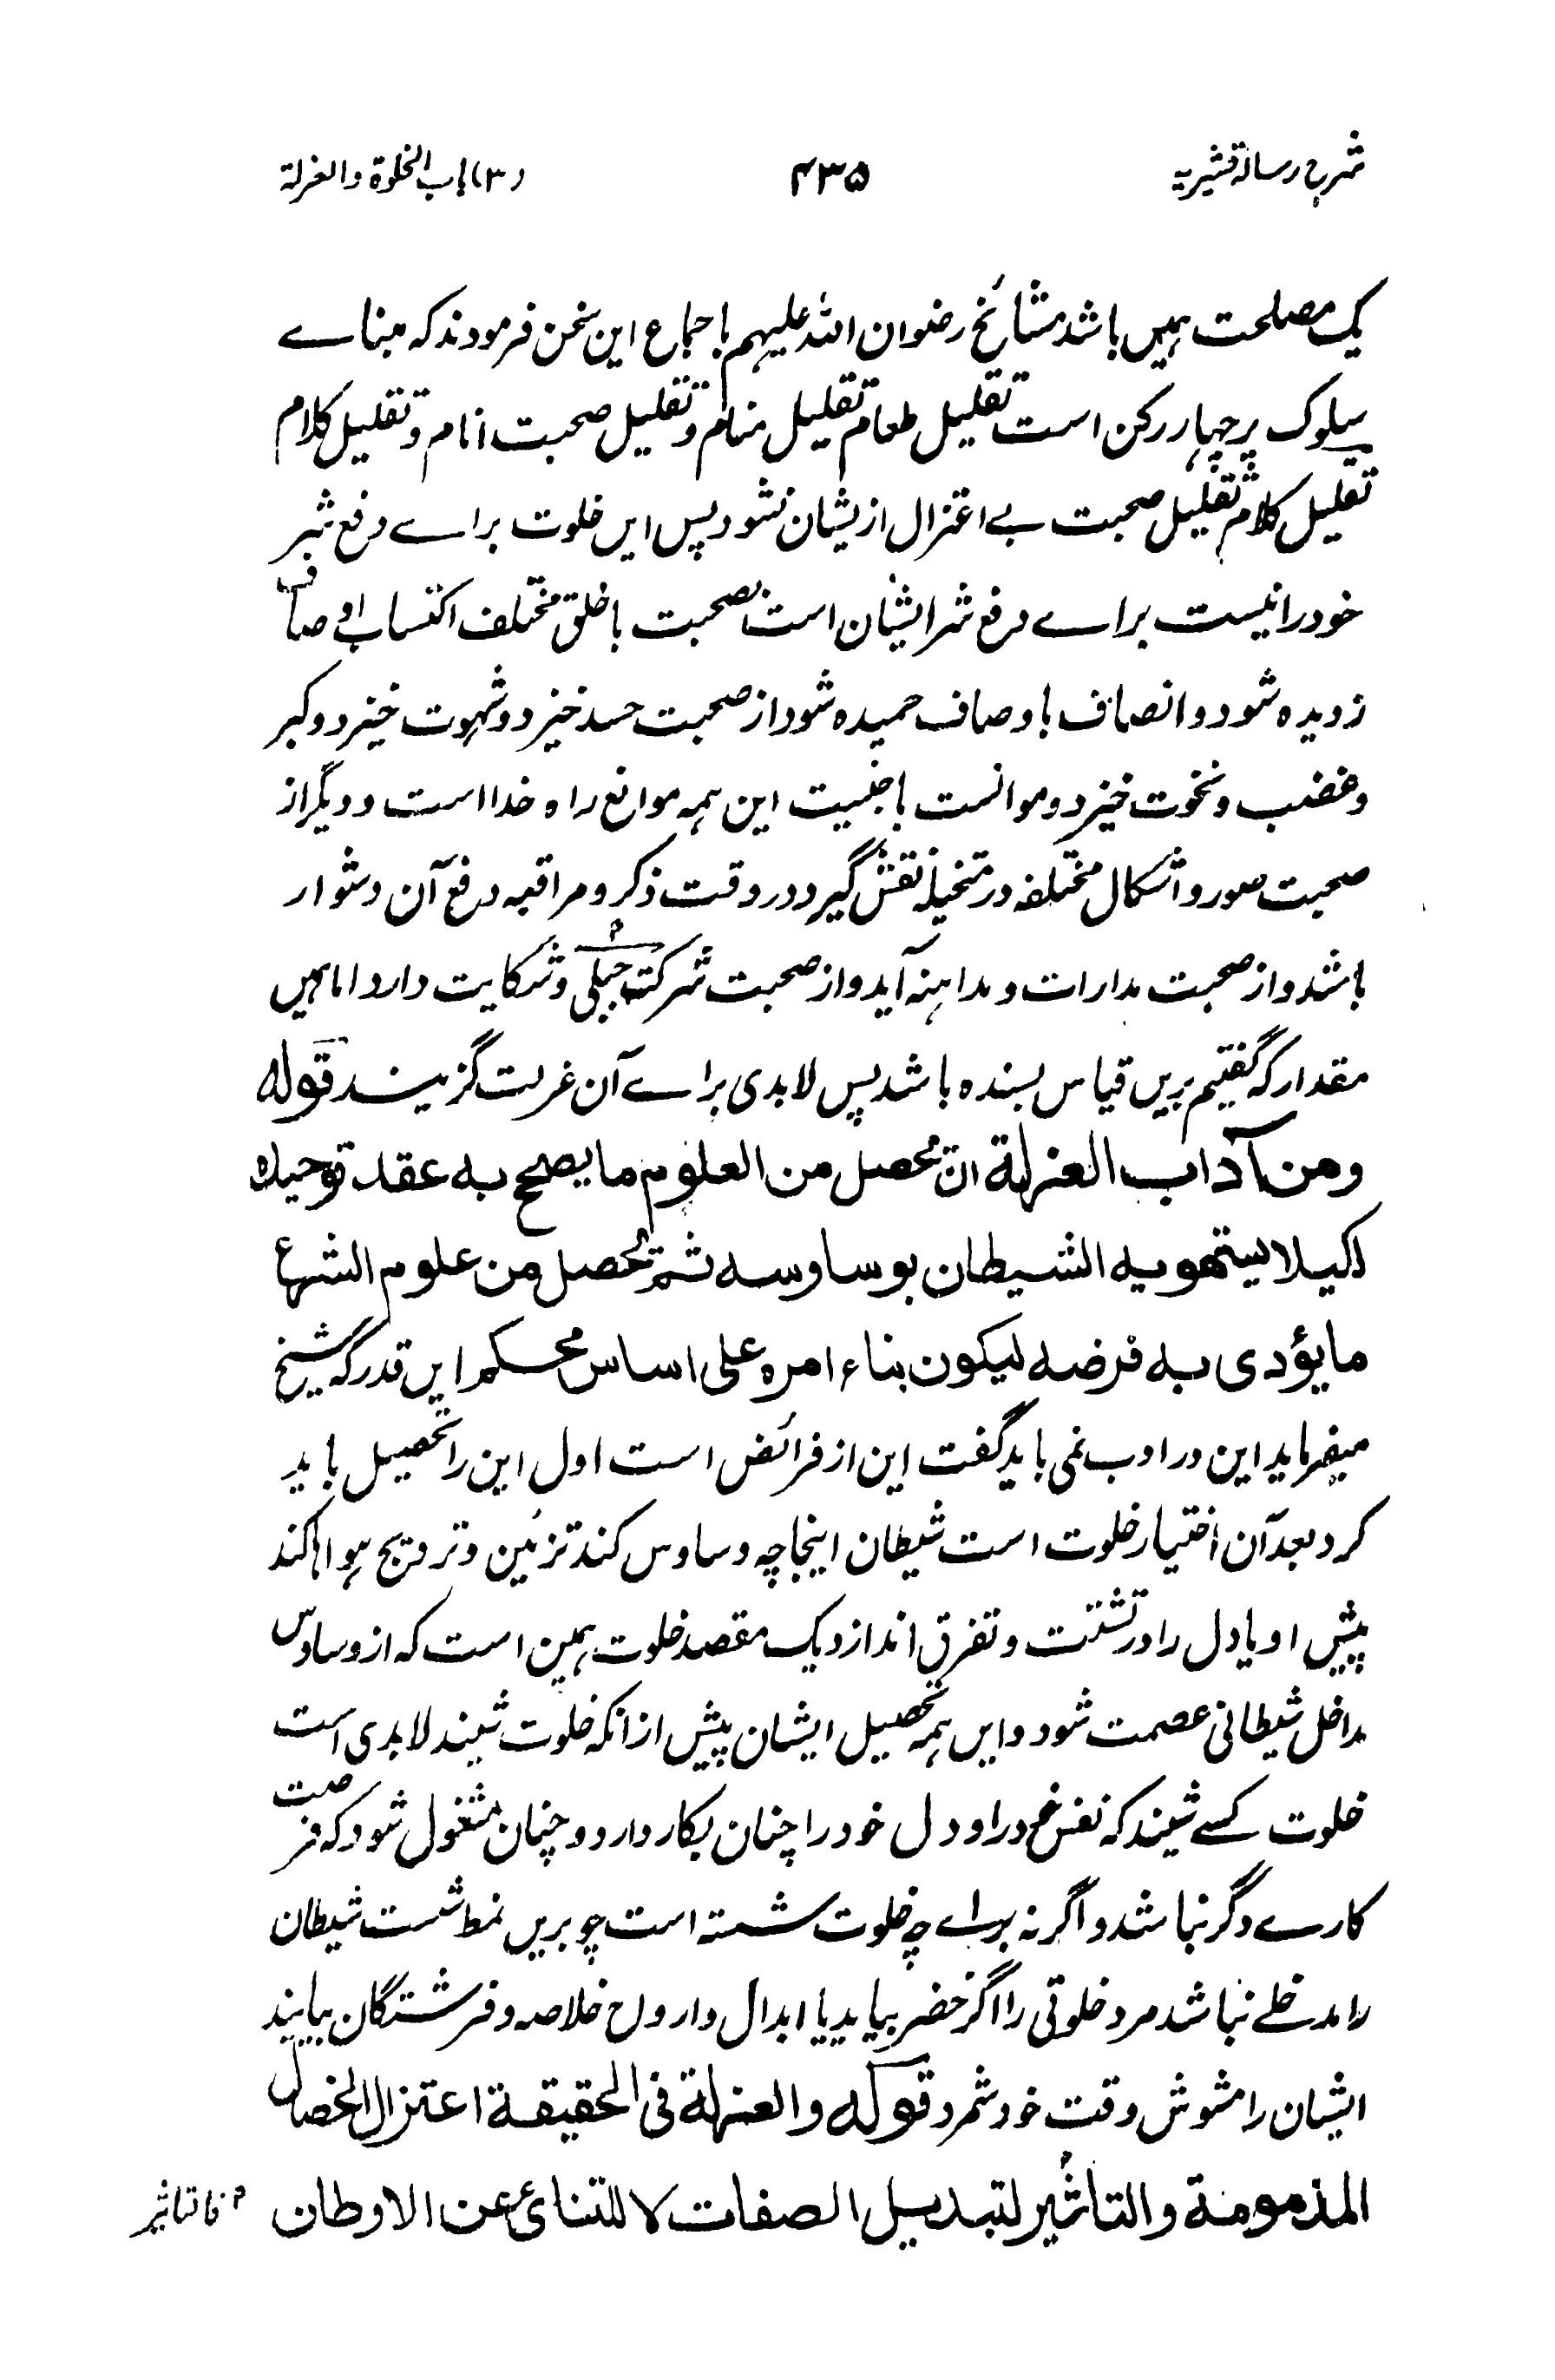 شرح رسالۀ قشیریه ۴۳۵ (۳) باب الخلوة والعزلة
یک مصلحت ہمیں باشد مشائخ رضوان اللہ علیہم باجماع این سخن فرمودند که مبناے
سلوک بر چہار رکن است تقلیل طعام تقلیل منام و تقلیل صحبت انام و تقلیل کلام
تقلیل کلام تقلیل صحبت بے اعتزال ازیشان نشود پس ایں خلوت براے دفع شر
خود را نیست براے دفع شر ایشان است بصحبت با خلق مختلف اکتساب اوصاف
ردیه شود و انصاف باوصاف حمیده شود از صحبت حسد خیزد و شہوت خیزد و کبر
و غضب و نخوت خیزد و موانست باجنبیت این ہمه موانع راه خدا است و دیگر از
صحبت صور و اشکال مختلفه در متخیله نقش گیرد در وقت ذکر و مراقبه دفع آن دشوار
باشد و از صحبت مدارات و مداہنه آید و از صحبت شرکت جبلی و شکایت دارد اما ہمیں
مقدار که گفتیم بریں قیاس بسنده باشد پس لابدی براے آن عزلت گزیند قوله
ومن آداب العزلة ان یحصل من العلوم ما یصحح به عقد توحیده
لکیلا یستهویه الشیطان بوساوسه ثم یحصل من علوم الشرع
ما یؤدی به فرضه لیکون بناء امره علی اساس محکم ایں قدر که شیخ
میفرماید این در ادب نمی باید گفت این از فرائض است اول این را تحصیل باید
کرد بعد آن اختیار خلوت است شیطان اینجا چه وساوس کند تزئین و ترویج ہواہا کند
پیش او یا دل را در تشتت و تفرق اندازد یک مقصد خلوت ہمین است که از وساوس
مداخل شیطانی عصمت شود و ایں ہمه تحصیل ایشان پیش از انکه خلوت شیند لابدی است
خلوت کسے شیند که نفس خود را و دل خود را چنان بکار دارد و چنان مشغول شود که فرصت
کارے دگر نباشد و اگر نه براے چه خلوت نشسته است چو بریں نمط نشست شیطان
را مدخلے نباشد مرد خلوتی را اگر خضر بیاید یا ابدال و ارواح خلاصه و فرشتگان بیایند
ایشان را مشوش وقت خود شمرد قوله والعزلة فی الحقیقة اعتزال الخصال
المذمومة والتاثیر لتبدیل الصفات لا للتنائ عن الاوطان
م فالتاثیر